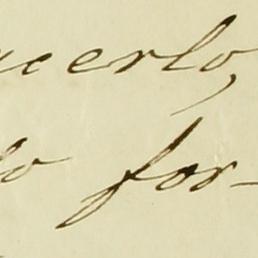 acerlo,
lo for-